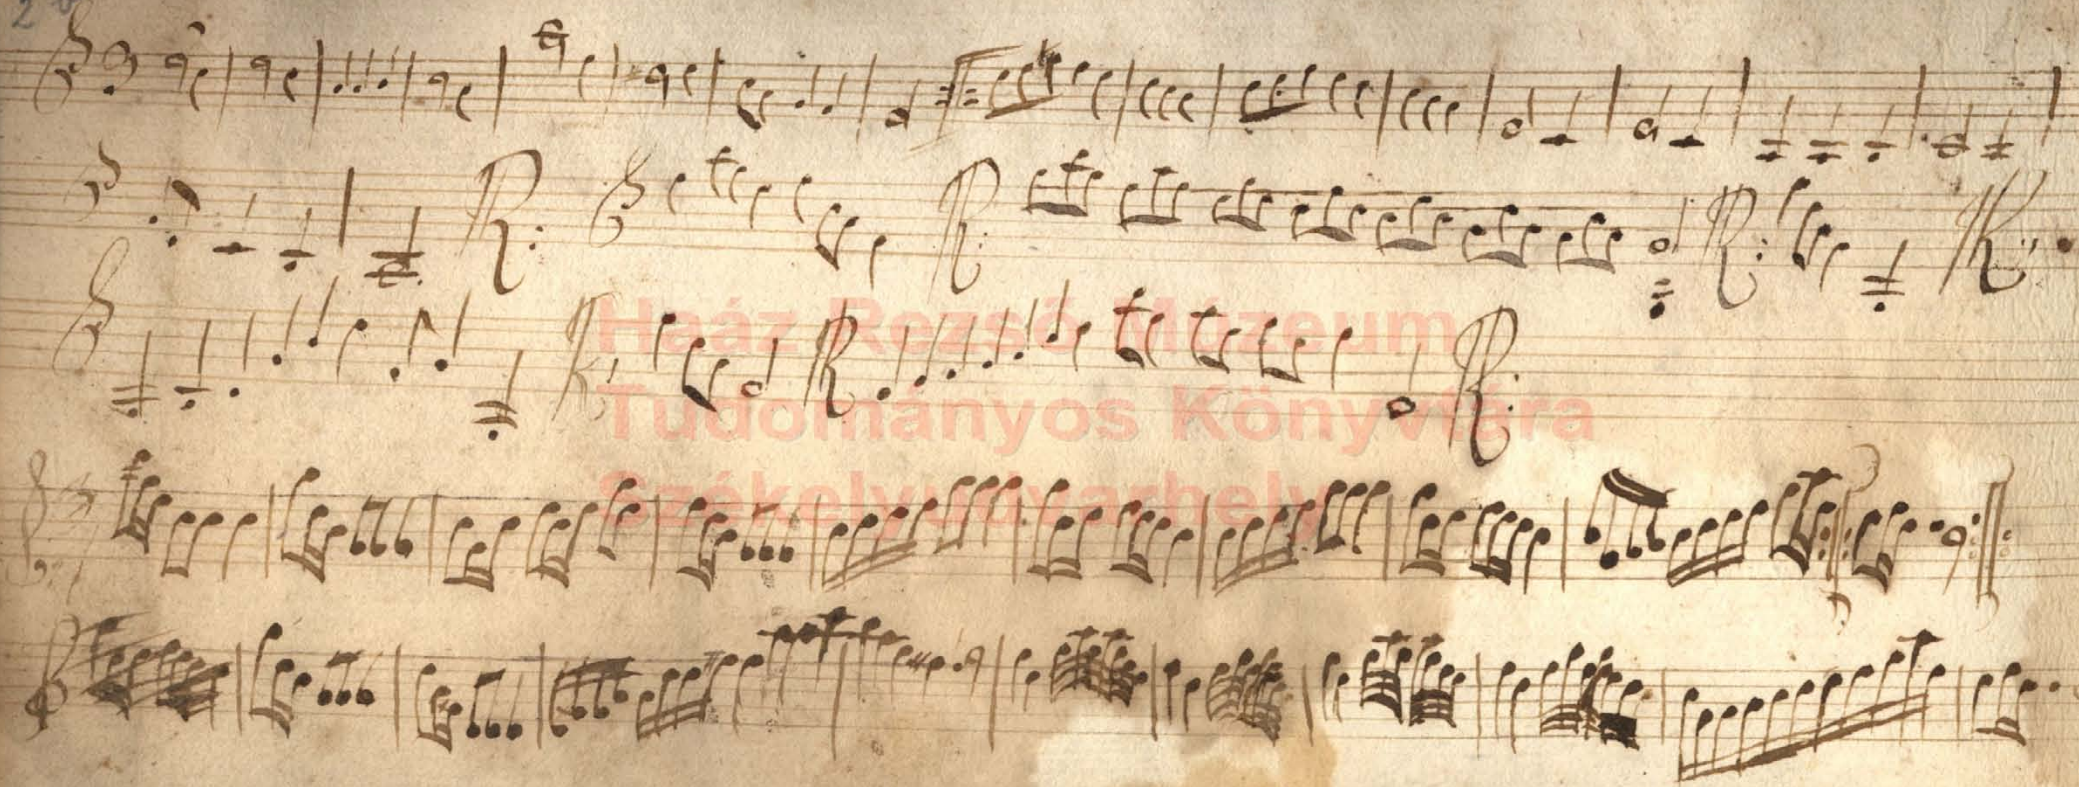 2
R:
R.
R:
R:
R:
R
R:
Haáz Rezső Múzeum
Tudományos Könyvtára
Székelyudvarhely